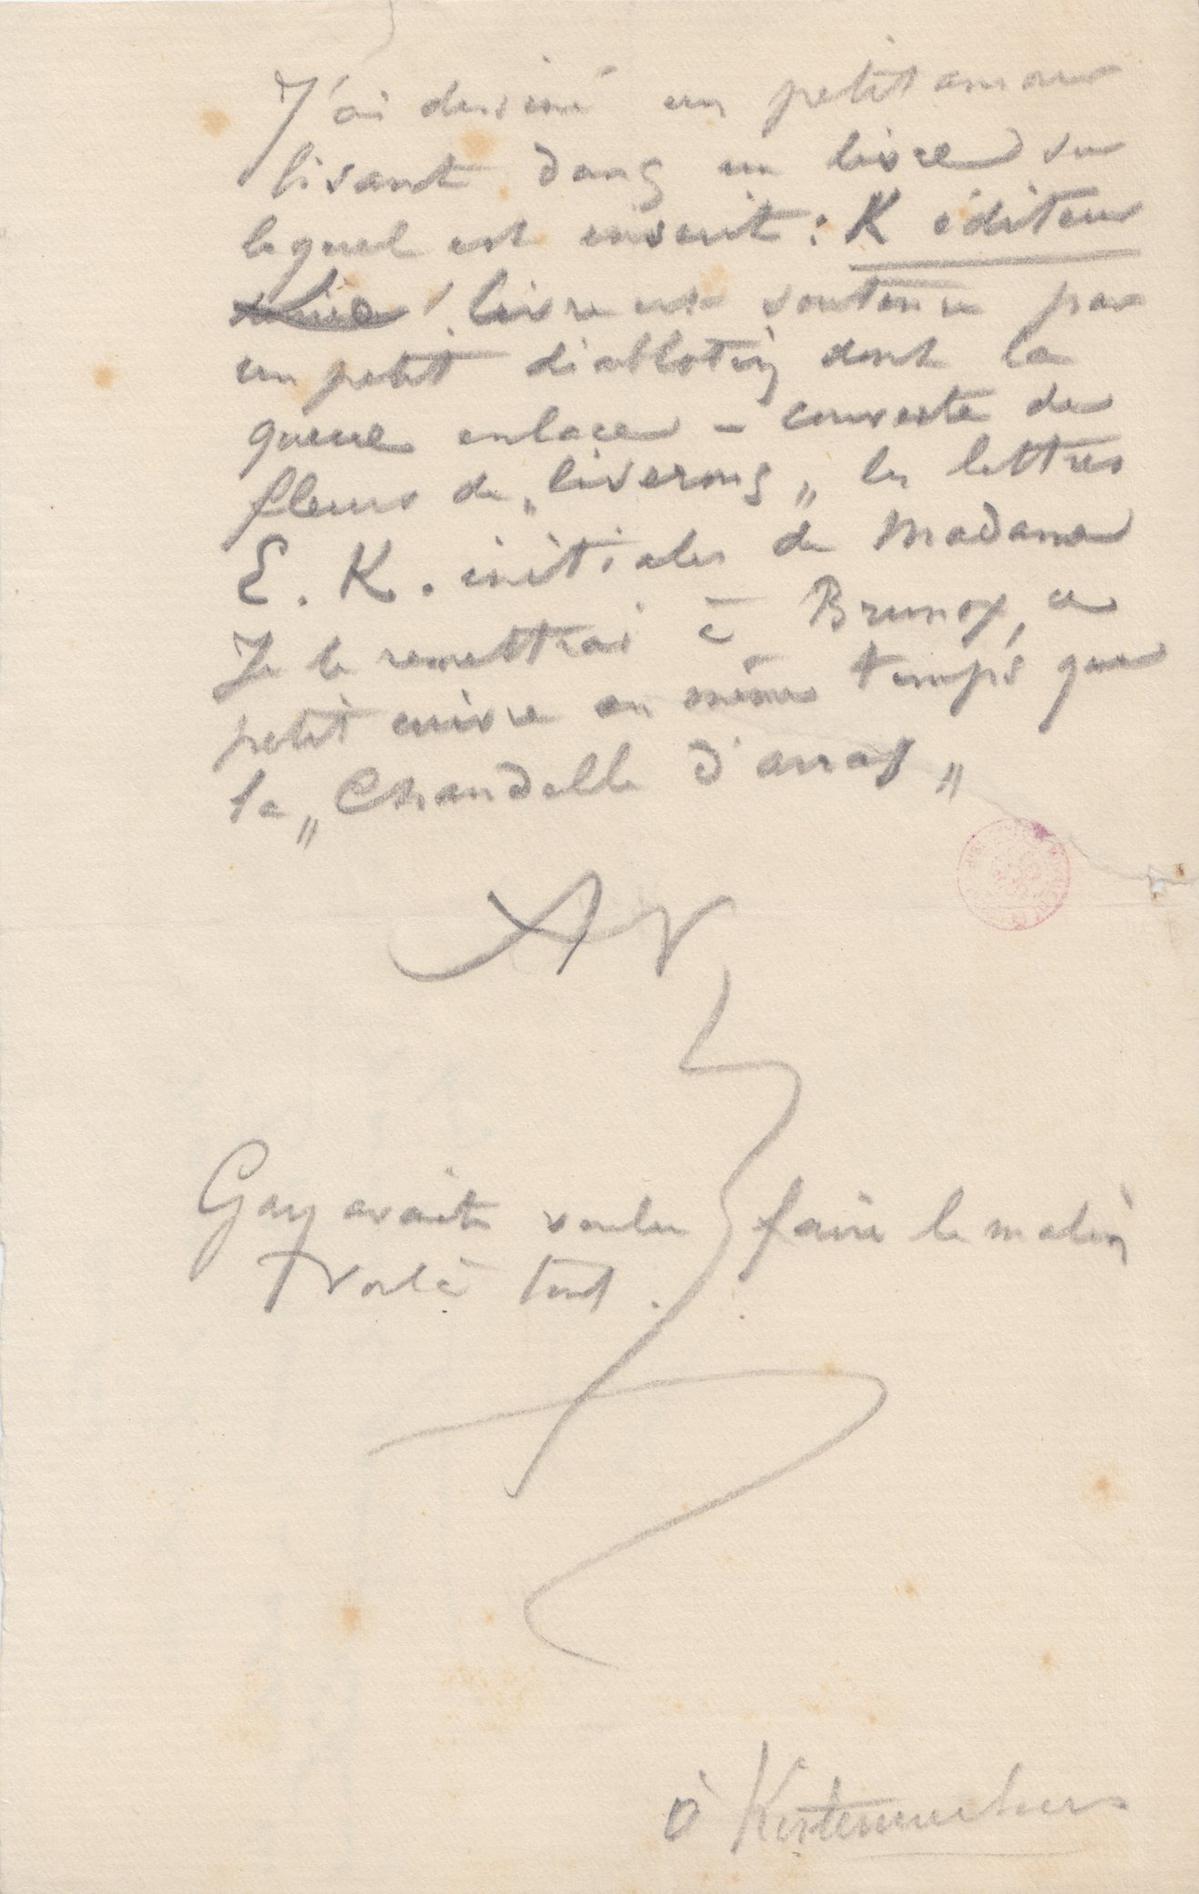 J'ai dessiné un petit amour
lisant dans un livre sur
lequel est inscrit : K éditeur
! livre est soutenu par
un petit diablotin dont la
queue enlace – couverte de
fleurs de „liserons„ les lettres
E. K. initiales de Madame
Je le remettrai à Brunox, ce
petit cuivre en même temps que
la „Chandelle d'arras„
Gay avait voulu faire le malin
Voilà tout.
à Kistemaeckers